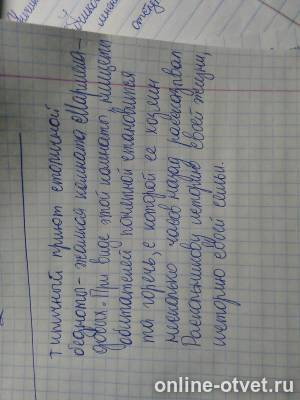 типичный приют столичной
бедноты - жалкая комната Мармела-
довых. При виде этой комнаты, нищеты
обитателей понятной становится
та горечь, с которой ее хозяин
несколько часов назад рассказывал
Раскольникову историю своей жизни,
историю своей семьи.
online-otvet.ru